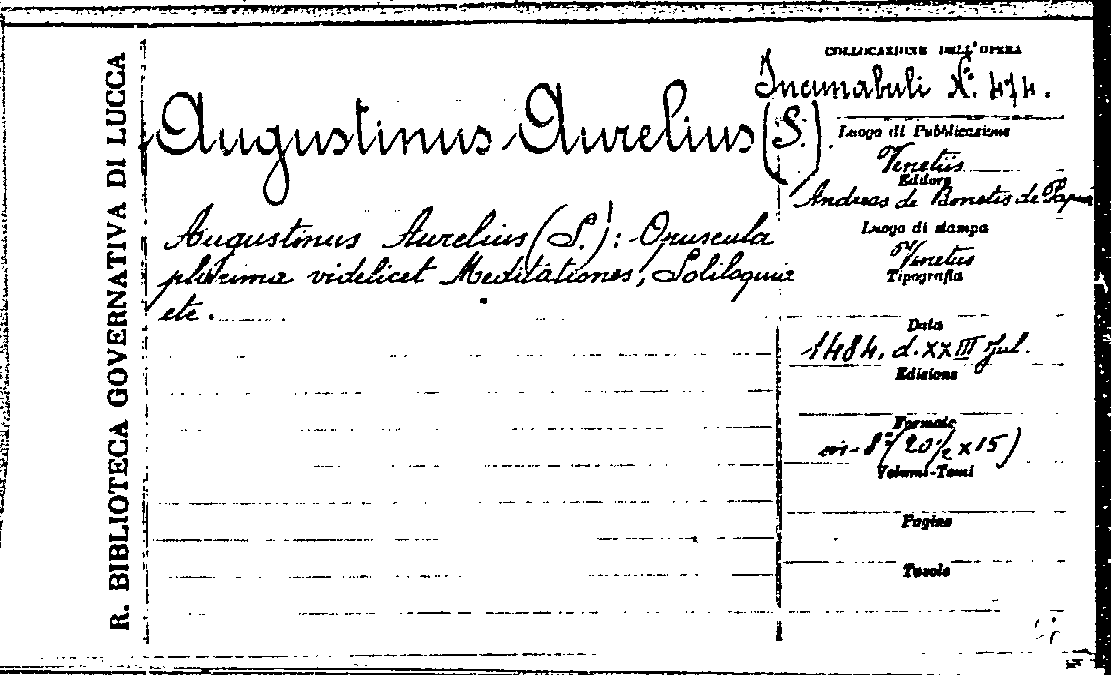 R. BIBLIOTECA GOVERNATIVA DI LUCCA
Augustinus Aurelius (S.)
Augustinus Aurelius (S.): Opuscula
plurima videlicet Meditationes, Soliloquia
etc.
COLLOCAZIONE DELL'OPERA
Incunabuli N.° 474.
Luogo di Pubblicazione
Venetiis
Editore
Andreas de Bonetis de Papia
Luogo di stampa
Venetiis
Tipografia
Data
1484. d. XXIII Jul.
Edizione
Formato
in-8° (20 1/2 x 15)
Volumi-Tomi
Pagine
Tavole